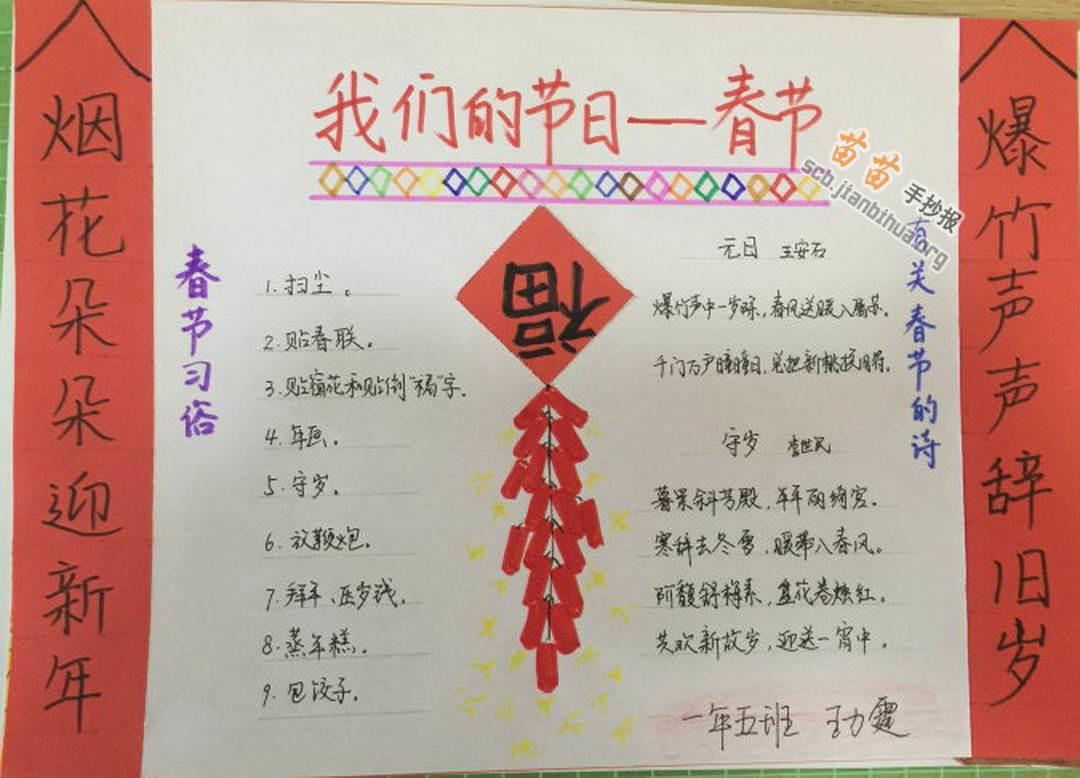 我们的节日——春节
苗苗
手抄报
scb.jianbihua.org
爆竹声声辞旧岁
烟花朵朵迎新年
春节习俗
1.扫尘。
2.贴春联。
3.贴窗花和贴倒“福”字。
4.年画。
5.守岁。
6.放鞭炮。
7.拜年、压岁钱。
8.蒸年糕。
9.包饺子。
福
有关春节的诗
元日 王安石
爆竹声中一岁除,春风送暖入屠苏。
千门万户曈曈日,总把新桃换旧符。
守岁 李世民
暮景斜芳殿,年年丽绮宫。
寒辞去冬雪,暖带入春风。
阶馥舒梅素,盘花卷烛红。
共欢新故岁,迎送一宵中。
一年五班 王力霆